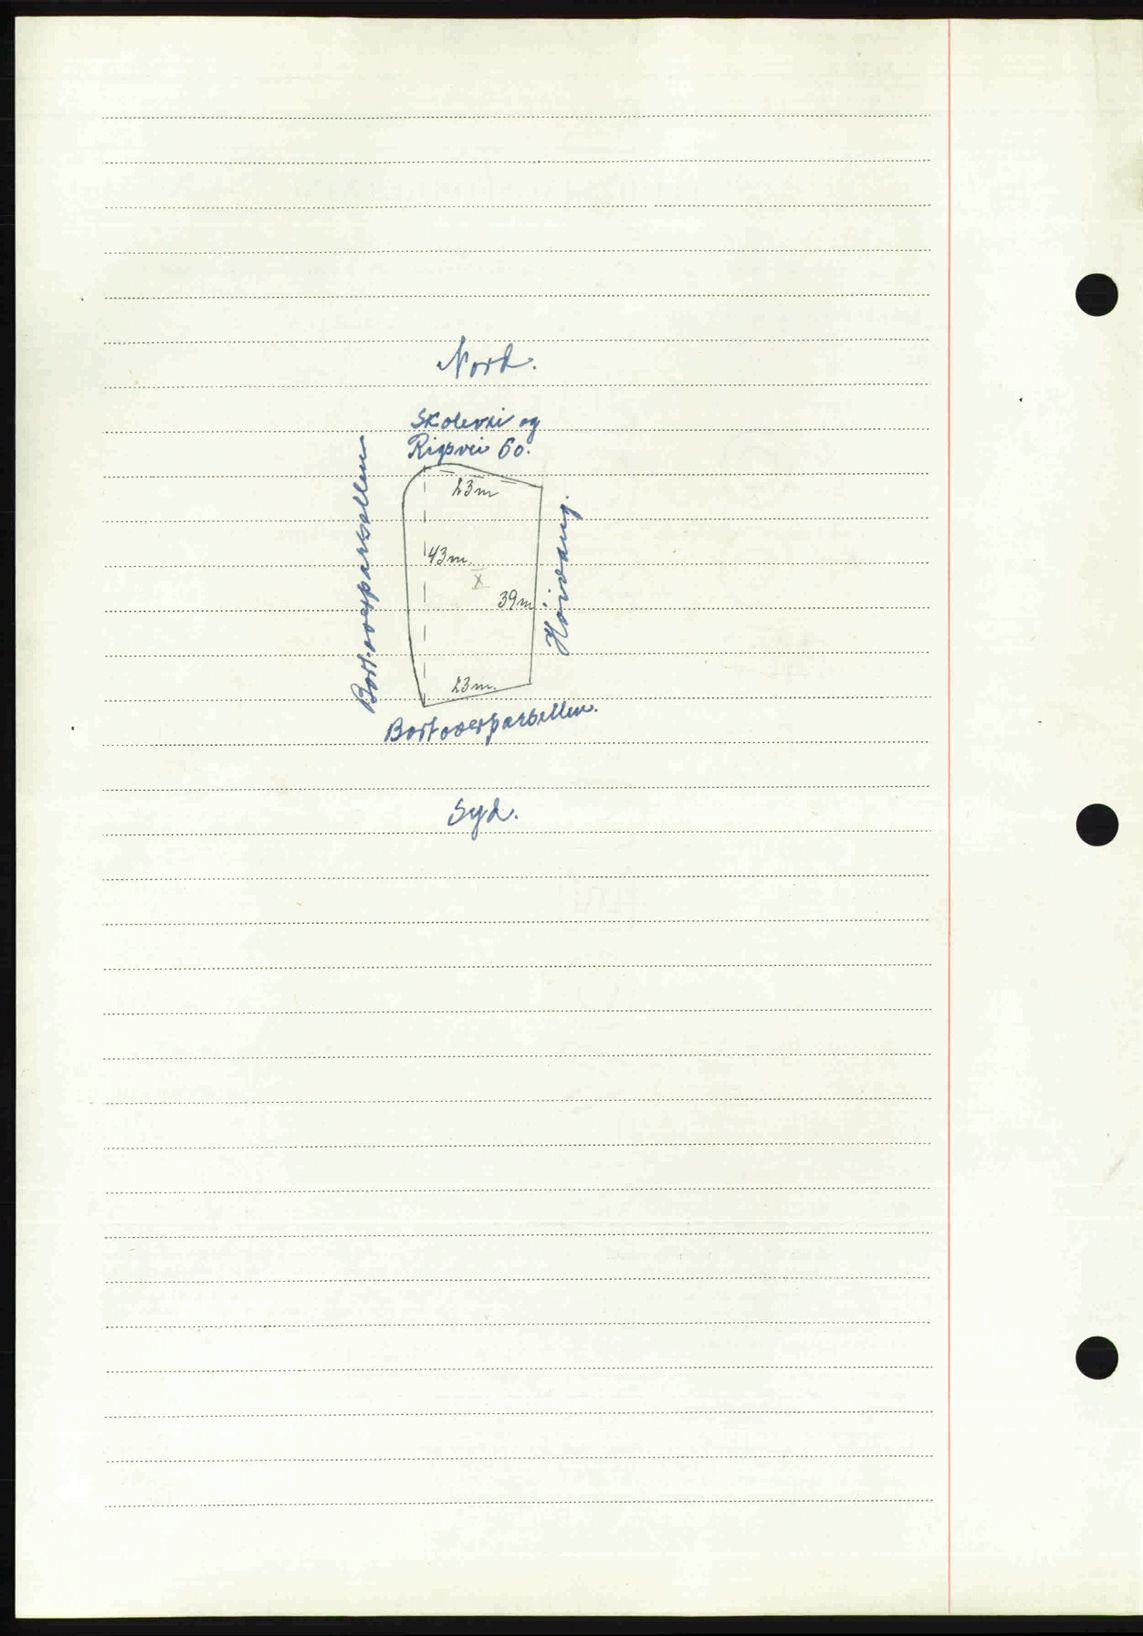 Nord.
Skolevei og
Riksvei 60.
23m
Bortoverparsellen
43m.
x
39m
Høivang.
23m.
Bortoverparsellen.
Syd.